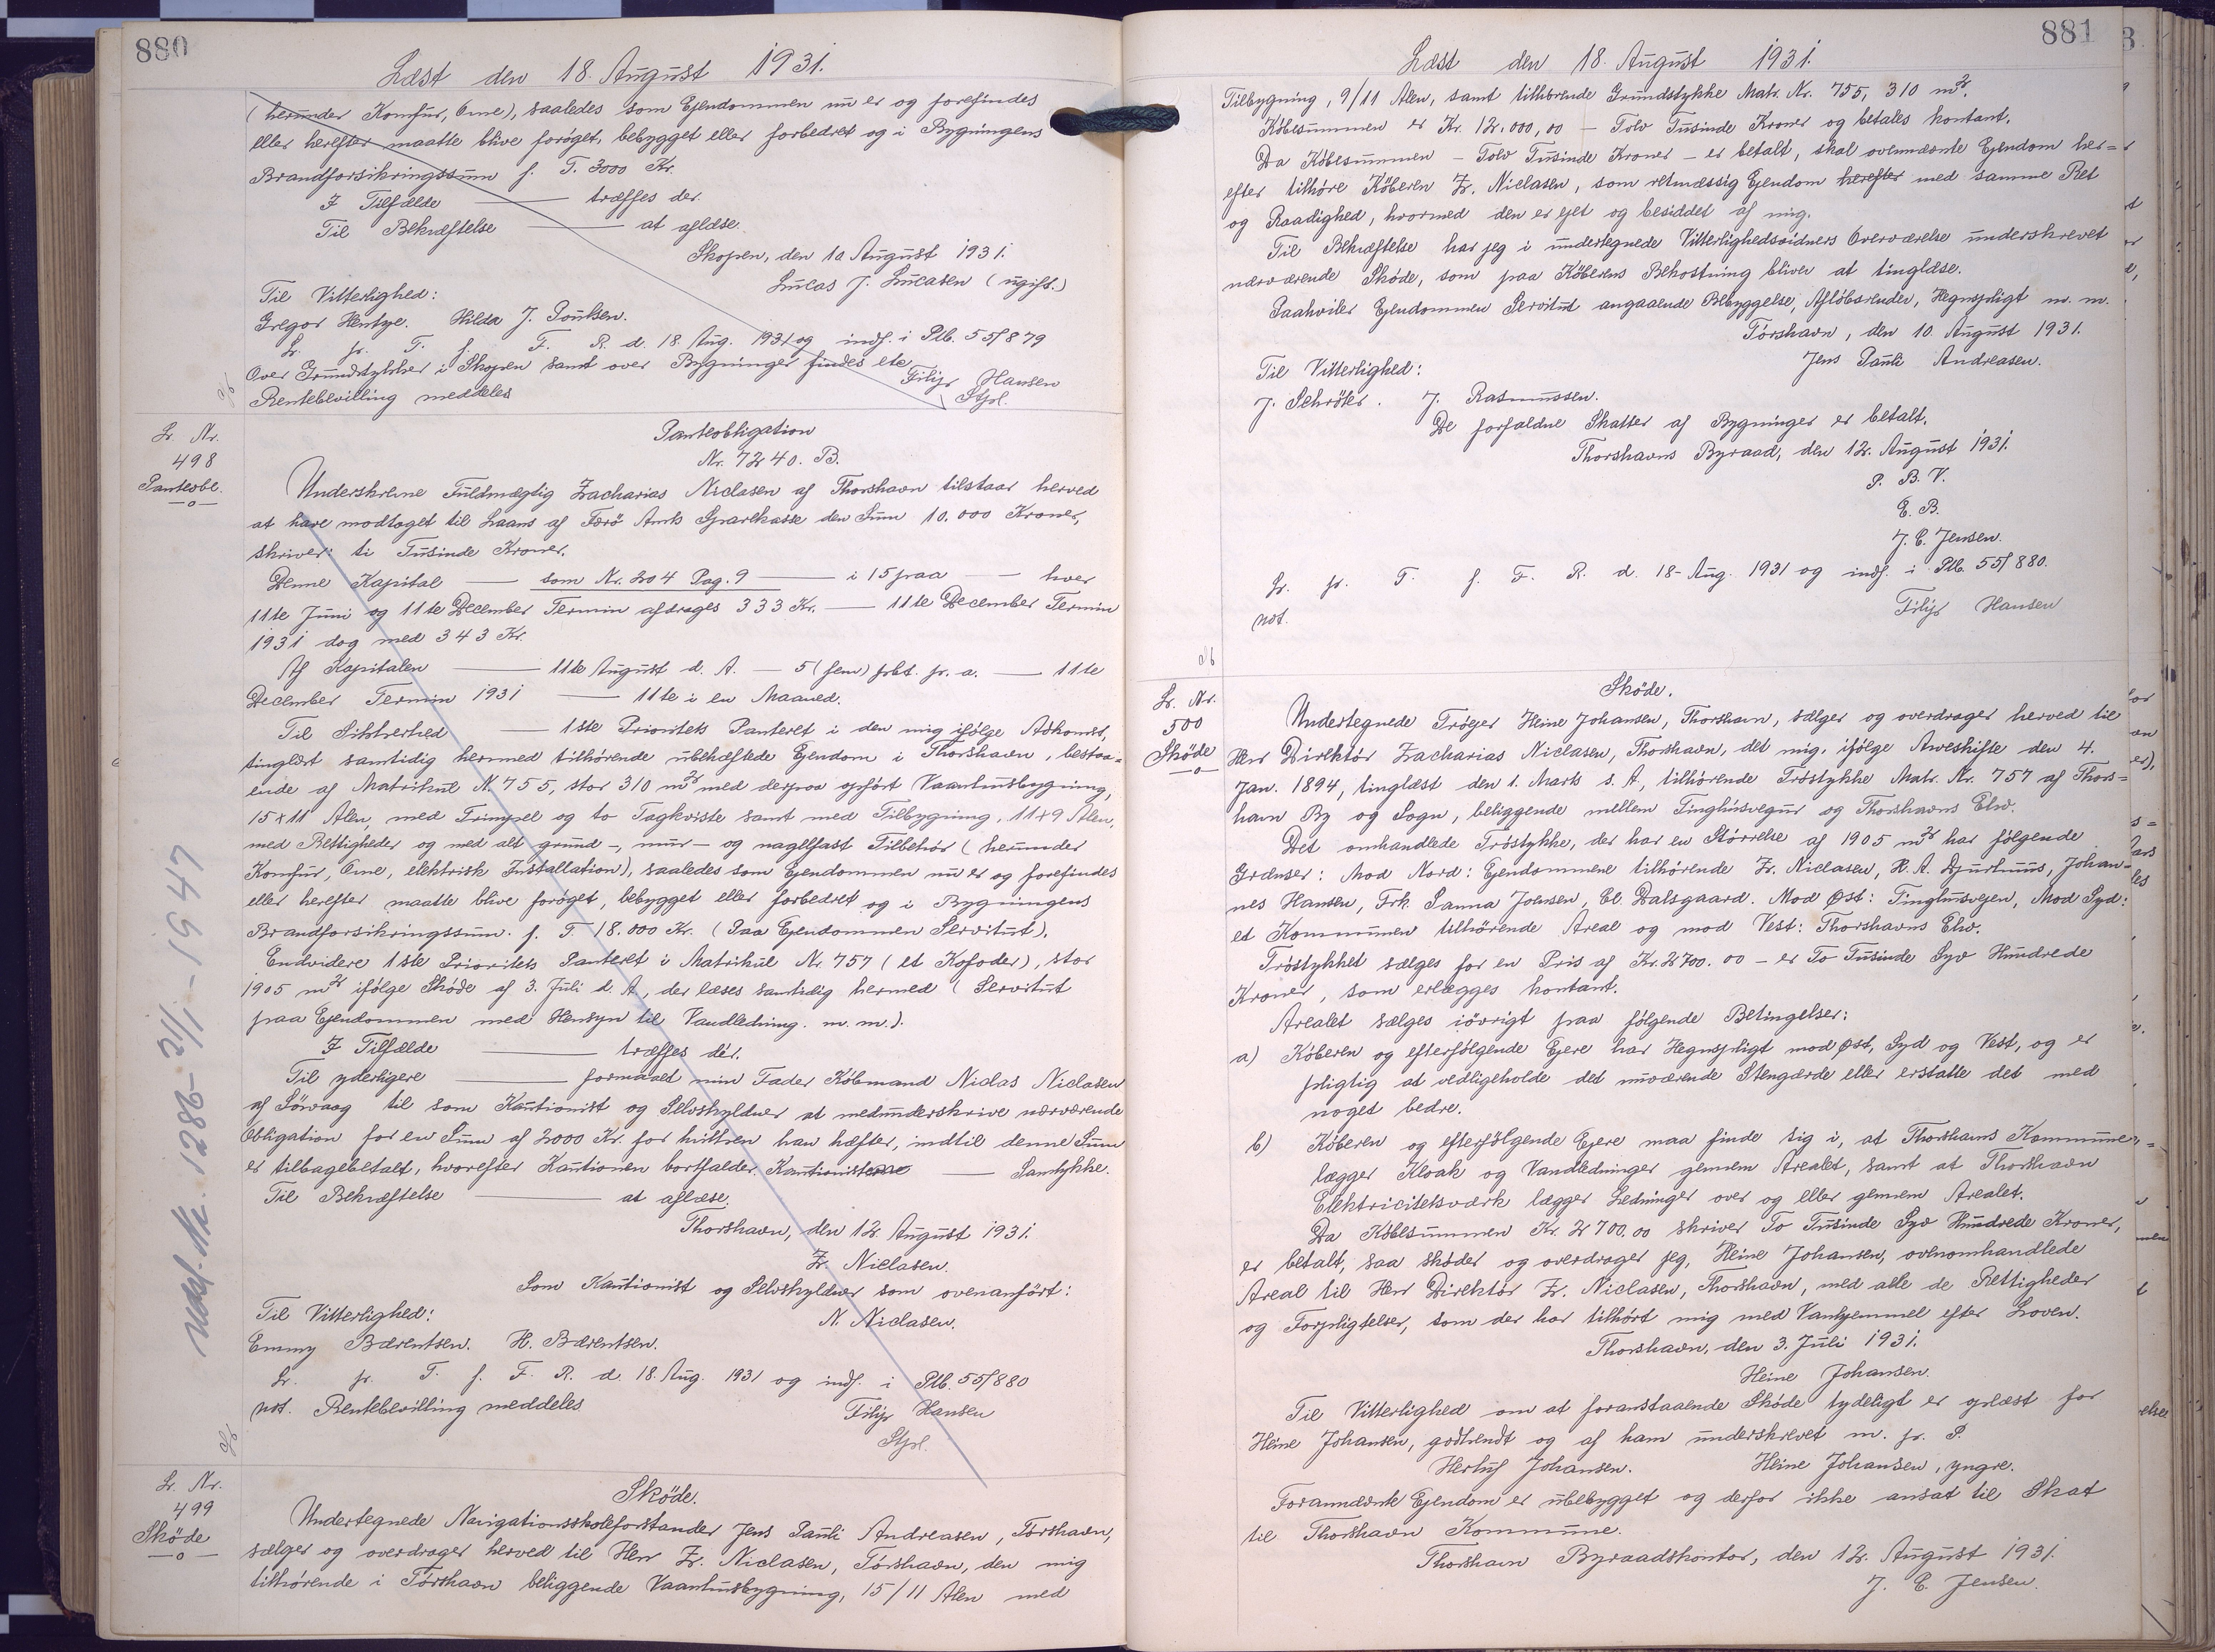 880
Læst den 18. August 1931.
(herunder Komfur, Ovne), saaledes som Ejendommen nu er og forefindes
eller herefter maatte blive forøget, bebygget eller forbedret og i Bygningens
Brandforsikringssum f. T. 3000 Kr.
I Tilfælde — træffes der.
Til Bekræftelse — at aflæse.
Skopen, den 10 August 1931.
Lucas J. Lucasen (ugift.)
Til Vitterlighed:
Gregor Hentze. Hilda J. Poulsen.
Lr. pr. T. f. F. R. d. 18. Aug. 1931 og indf. i Ptb. 55/879
Over Grundstykker i Skopen samt over Bygninger findes etc
Filip Hansen
Rentebevilling meddeles
Stpl.
Lr. Nr.
498
Panteobl.
Panteobligation
Nr. 7240. B.
Underskrevne Fuldmægtig Zacharias Niclasen af Thorshavn tilstaar herved
at have modtaget til Laans af Færø Amts Sparekasse den Sum 10.000 Kroner,
skriver: ti Tusinde Kroner.
Denne Kapital — som Nr. 204 Pag. 9 — i 15 paa — hver
11te Juni og 11te December Termin afdrages 333 Kr. — 11te December Termin
1931 dog med 343 Kr.
Af Kapitalen — 11te August d. A. — 5 (fem) pct. pr. a. — 11te
December Termin 1931 — 11te i en Maaned.
Til Sikkerhed — 1ste Prioritets Panteret i den mig ifølge Adkomst,
tinglæst samtidig hermed tilhørende ubehæftede Ejendom i Thorshavn, bestaa=
ende af Matrikul N. 755, stor 310 m² med derpaa opført Vaanhusbygning,
15x11 Alen, med Trimpel og to Tagkviste samt med Tilbygning, 11x9 Alen,
med Rettigheder og med alt grund-, mur- og nagelfast Tilbehør (herunder
Komfur, Ovne, elektrisk Installation), saaledes som Ejendommen nu er og forefindes
eller herefter maatte blive forøget, bebygget eller forbedret og i Bygningens
Brandforsikringssum. f. T. 18.000 Kr. (Paa Ejendommen Servitut).
Endvidere 1ste Prioritets Panteret i Matrikul Nr. 757 (et Kofoder), stor
1905 m² ifølge Skøde af 3. Juli d. A., der læses samtidig hermed (Servitut
paa Ejendommen med Hensyn til Vandledning. m. m.).
I Tilfælde — træffes dér.
Til yderligere — formaaet min Fader Købmand Niclas Niclasen
af Sörvaag til som Kautionist og Selvskyldner at medunderskrive nærværende
Obligation for en Sum af 2000 Kr. for hvilken han hæfter, indtil denne Sum
er tilbagebetalt, hvorefter Kautionen bortfalder. Kautionisterne — Samtykke.
Til Bekræftelse — at aflæse.
Thorshavn, den 12. August 1931.
Z. Niclasen.
Som Kautionist og Selvskyldner som ovenanført:
N. Niclasen.
Til Vitterlighed:
Emmy Bærentsen. H. Bærentsen.
Lr. pr. T. f. F. R. d. 18. Aug. 1931 og indf. i Ptb. 55/880
not. Rentebevilling meddeles
Filip Hansen
Stpl.
Udsl. Nr. 1286 - 21/1 - 1947
Lr. Nr.
499
Skøde
Skøde.
Undertegnede Navigationsskoleforstander Jens Pauli Andreasen, Tórshavn,
sælger og overdrager herved til Herr Z. Niclasen, Tórshavn, den mig
tilhørende i Tórshavn beliggende Vaanhusbygning, 15/11 Alen med
881
Læst den 18. August 1931.
Tilbygning, 9/11 Alen, samt tilhørende Grundstykke Matr. Nr. 755, 310 m².
Købesummen er Kr. 12.000,00 — Tolv Tusinde Kroner og betales kontant.
Da Købesummen — Tolv Tusinde Kroner — er betalt, skal ovennævnte Ejendom her=
efter tilhøre Køberen Z. Niclasen, som retmæssig Ejendom herefter med samme Ret
og Raadighed, hvormed den er ejet og besiddet af mig.
Til Bekræftelse har jeg i undertegnede Vitterlighedsvidners Overværelse underskrevet
nærværende Skøde, som paa Køberens Bekostning bliver at tinglæse.
Paahviler Ejendommen Servitut angaaende Bebyggelse, Afløbsrender, Hegnspligt m. m.
Tórshavn, den 10. August 1931.
Jens Pauli Andreasen.
Til Vitterlighed:
J. Schrøter. J. Rasmussen.
De forfaldne Skatter af Bygninger er betalt.
Thorshavns Byraad, den 12. August 1931.
P. B. V.
E. B.
J. C. Jensen.
Lr. pr. T. f. F. R. d. 18- Aug. 1931 og indf. i Ptb. 55/880.
not.
Filip Hansen
Lr. Nr.
500
Skøde
Skøde.
Undertegnede Trøjer Heine Johansen, Thorshavn, sælger og overdrager herved til
Herr Direktør Zacharias Niclasen, Thorshavn, det mig, ifølge Arveskifte den 4.
Jan. 1894, tinglæst den 1. Marts s. A, tilhørende Trøstykke Matr. Nr. 757 af Thors=
havn By og Sogn, beliggende mellem Tinghúsvegur og Thorshavns Elv.
Det omhandlede Trøstykke, der har en Størrelse af 1905 m² har følgende
Grænser: Mod Nord: Ejendommene tilhørende Z. Niclasen, H. A. Djurhuus, Johan=
nes Hansen, Frk. Sanna Joensen, Cl. Dalsgaard. Mod Øst: Tinghusvejen, Mod Syd:
et Kommunen tilhørende Areal og mod Vest: Thorshavns Elv.
Trøstykket sælges for en Pris af Kr. 2700.00 — er To Tusinde Syv Hundrede
Kroner, som erlægges kontant.
Arealet sælges iøvrigt paa følgende Betingelser:
a) Køberen og efterfølgende Ejere har Hegnspligt mod Øst, Syd og Vest, og er
pligtig at vedligeholde det nuværende Stengærde eller erstatte det med
noget bedre.
b) Køberen og efterfølgende Ejere maa finde sig i, at Thorshavns Kommune
lægger Kloak og Vandledninger gennem Arealet, samt at Thorshavn
Elektricitetsværk lægger Ledninger over og eller gennem Arealet.
Da Købesummen Kr. 2700.00 skriver To Tusinde Syv Hundrede Kroner,
er betalt, saa skøder og overdrager jeg, Heine Johansen, ovenomhandlede
Areal til Herr Direktør Z. Niclasen, Thorshavn, med alle de Rettigheder
og Forpligtelser, som der har tilhørt mig med Vanhjemmel efter Loven.
Thorshavn, den 3. Juli 1931.
Heine Johansen.
Til Vitterlighed om at foranstaaende Skøde tydeligt er oplæst for
Heine Johansen, godkendt og af ham underskrevet m. p. P.
Herluf Johansen. Heine Johansen, yngre.
Forannævnte Ejendom er ubebygget og derfor ikke ansat til Skat
til Thorshavn Kommune.
Thorshavn Byraadskontor, den 12. August 1931.
J. C. Jensen.